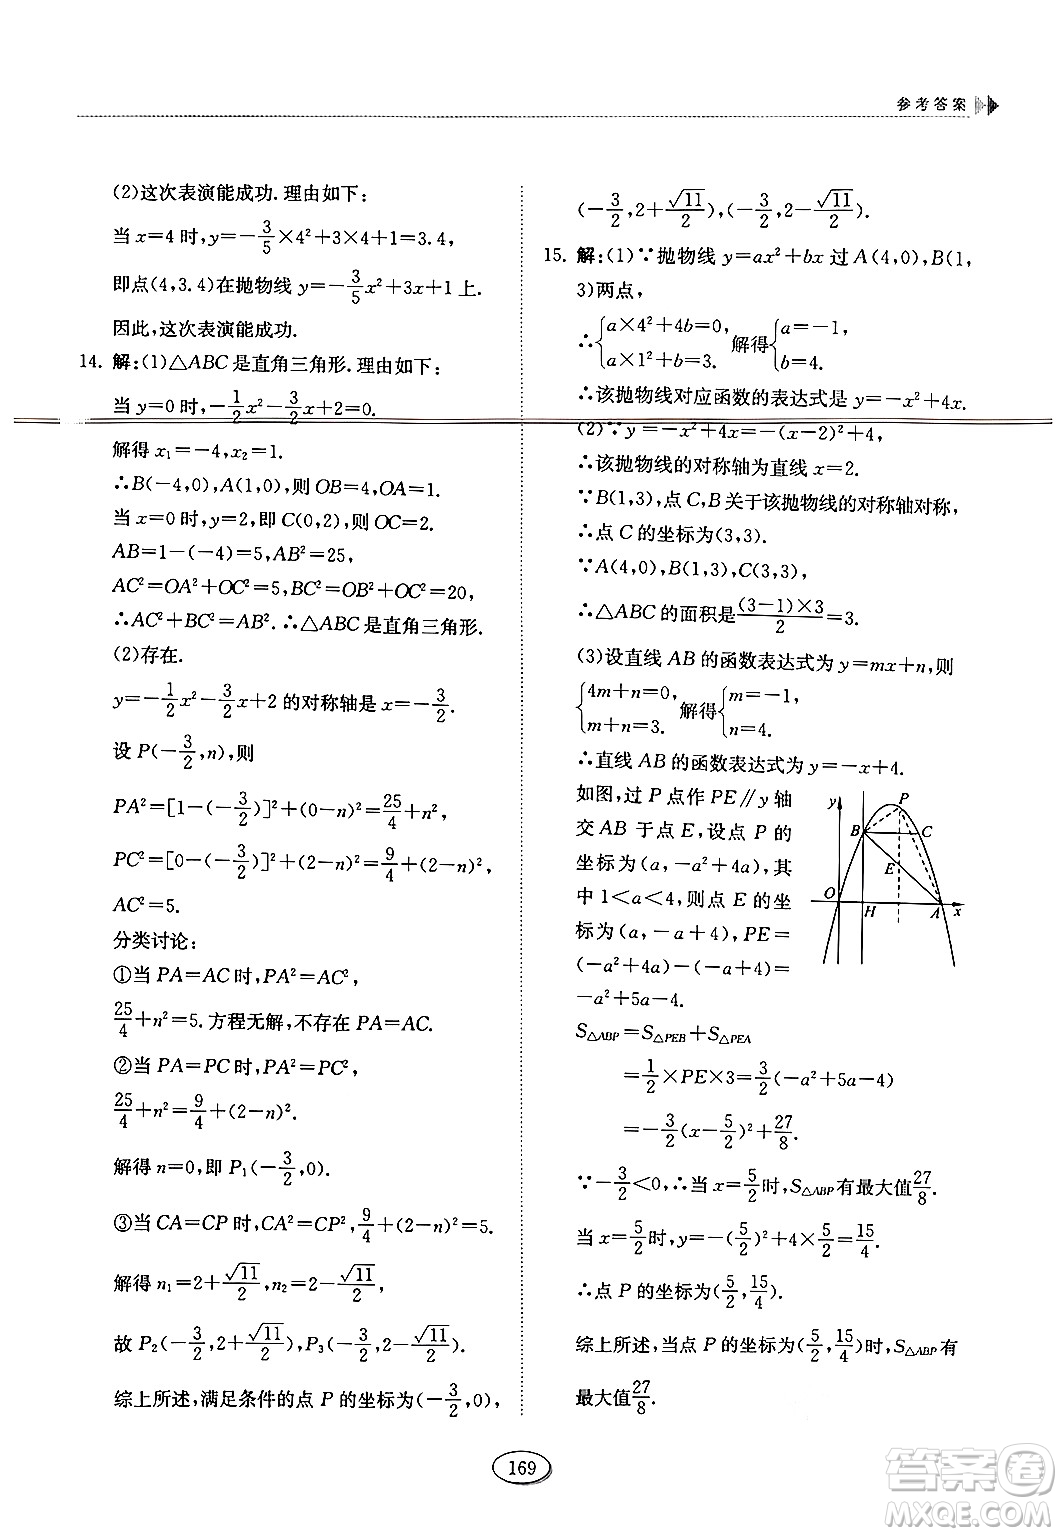 参考答案
(2)这次表演能成功.理由如下:
当 x=4 时,y=-\frac{3}{5}×4²+3×4+1=3.4,
即点(4,3.4)在抛物线 y=-\frac{3}{5}x²+3x+1上.
因此,这次表演能成功.
14. 解:(1)△ABC 是直角三角形.理由如下:
当 y=0 时,-\frac{1}{2}x²-\frac{3}{2}x+2=0.
解得 x₁=-4,x₂=1.
∴B(-4,0),A(1,0),则 OB=4,OA=1.
当 x=0 时,y=2,即 C(0,2),则 OC=2.
AB=1-(-4)=5,AB²=25,
AC²=OA²+OC²=5,BC²=OB²+OC²=20,
∴AC²+BC²=AB².∴△ABC 是直角三角形.
(2)存在.
y=-\frac{1}{2}x²-\frac{3}{2}x+2 的对称轴是 x=-\frac{3}{2}.
设 P(-\frac{3}{2},n),则
PA²=[1-(-\frac{3}{2})]²+(0-n)²=\frac{25}{4}+n²,
PC²=[0-(-\frac{3}{2})]²+(2-n)²=\frac{9}{4}+(2-n)²,
AC²=5.
分类讨论:
①当 PA=AC 时,PA²=AC²,
\frac{25}{4}+n²=5.方程无解,不存在 PA=AC.
②当 PA=PC 时,PA²=PC²,
\frac{25}{4}+n²=\frac{9}{4}+(2-n)².
解得 n=0,即 P₁(-\frac{3}{2},0).
③当 CA=CP 时,CA²=CP²,\frac{9}{4}+(2-n)²=5.
解得 n₁=2+\frac{√11}{2},n₂=2-\frac{√11}{2},
故 P₂(-\frac{3}{2},2+\frac{√11}{2}),P₃(-\frac{3}{2},2-\frac{√11}{2}).
综上所述,满足条件的点 P 的坐标为(-\frac{3}{2},0),
(-\frac{3}{2},2+\frac{√11}{2}),(-\frac{3}{2},2-\frac{√11}{2}).
15. 解:(1)∵抛物线 y=ax²+bx 过 A(4,0),B(1,
3)两点,
∴{a×4²+4b=0, a×1²+b=3. 解得{a=-1, b=4.
∴该抛物线对应函数的表达式是 y=-x²+4x.
(2)∵y=-x²+4x=-(x-2)²+4,
∴该抛物线的对称轴为直线 x=2.
∵B(1,3),点 C,B 关于该抛物线的对称轴对称,
∴点 C 的坐标为(3,3).
∵A(4,0),B(1,3),C(3,3),
∴△ABC 的面积是\frac{(3-1)×3}{2}=3.
(3)设直线 AB 的函数表达式为 y=mx+n,则
{4m+n=0, m+n=3. 解得{m=-1, n=4.
∴直线 AB 的函数表达式为 y=-x+4.
如图,过 P 点作 PE∥y 轴
交 AB 于点 E,设点 P 的
坐标为(a,-a²+4a),其
中 1<a<4,则点 E 的坐
标为(a,-a+4),PE=
(-a²+4a)-(-a+4)=
-a²+5a-4.
y
P
B
C
E
O
H
A
x
S△ABP=S△PEB+S△PEA
=\frac{1}{2}×PE×3=\frac{3}{2}(-a²+5a-4)
=-\frac{3}{2}(x-\frac{5}{2})²+\frac{27}{8}.
∵-\frac{3}{2}<0,∴当 x=\frac{5}{2}时,S△ABP有最大值\frac{27}{8}.
当 x=\frac{5}{2}时,y=-(\frac{5}{2})²+4×\frac{5}{2}=\frac{15}{4}.
∴点 P 的坐标为(\frac{5}{2},\frac{15}{4}).
综上所述,当点 P 的坐标为(\frac{5}{2},\frac{15}{4})时,S△ABP有
最大值\frac{27}{8}.
169
答案圈
MXQE.COM